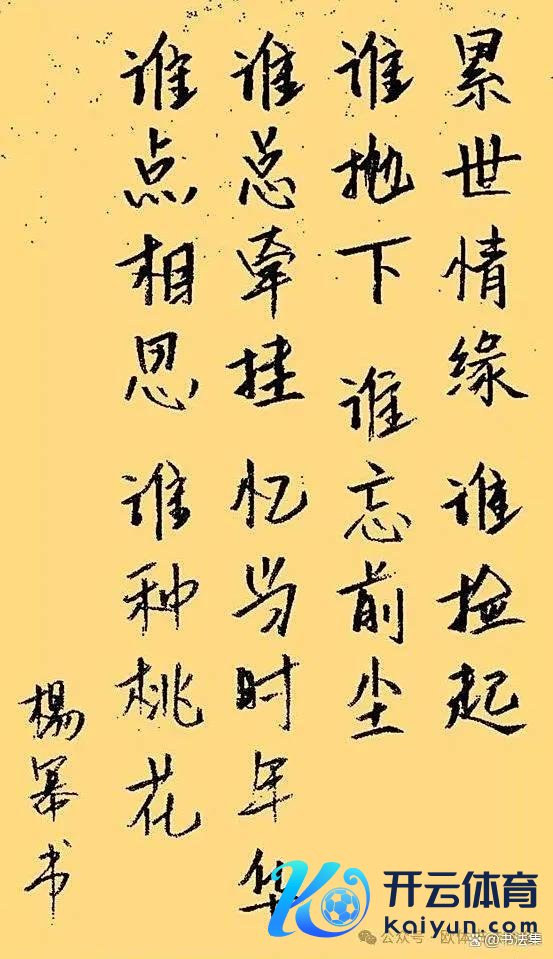 累世情缘 谁捡起
谁抛下 谁忘前尘
谁总牵挂 忆当时年华
谁点相思 谁种桃花
杨幂书
开云体育
Kaiyun.com
公众号
书法集